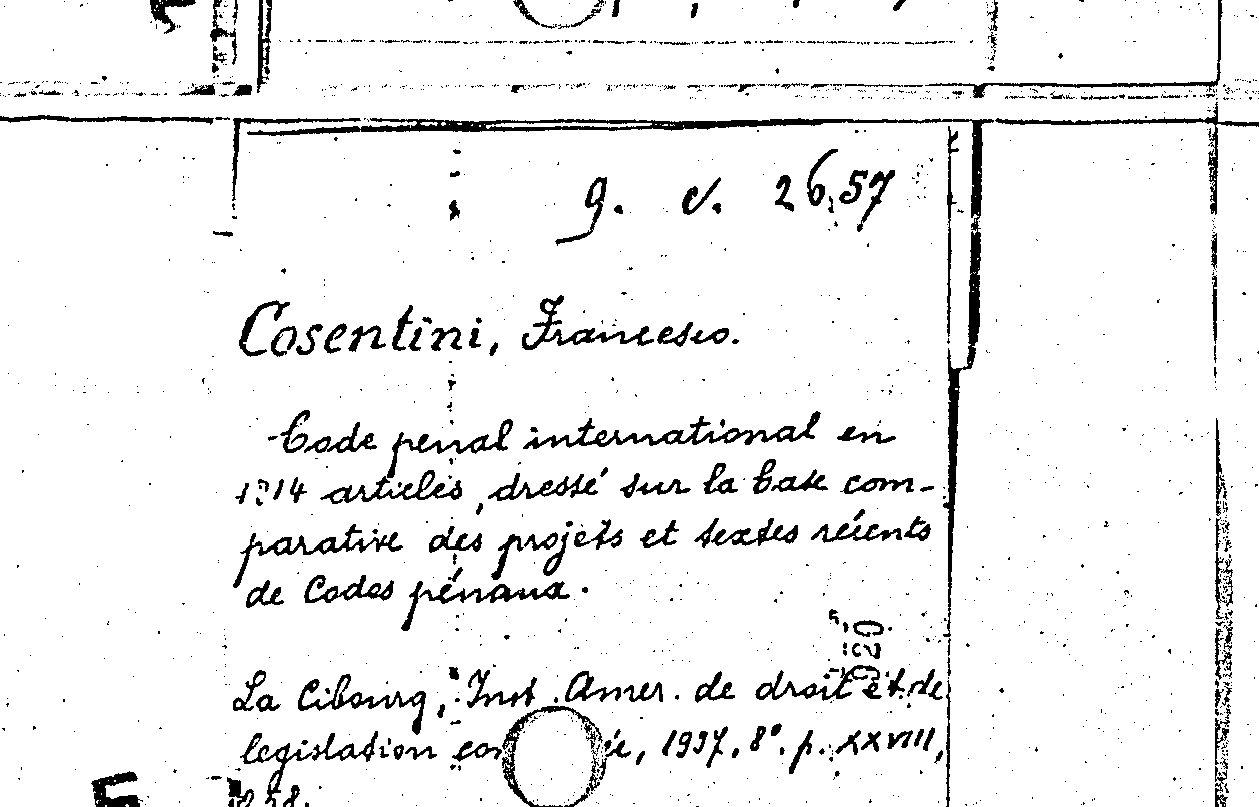 g. c. 2657
Cosentini, Francesco.
Code penal international en
1214 articles, dressé sur la base com-
parative des projets et textes récents
de Codes pénaux.
La Cibourg, Inst. Amer. de droit et de
legislation 1937. 8°. p. XXVIII,
258.